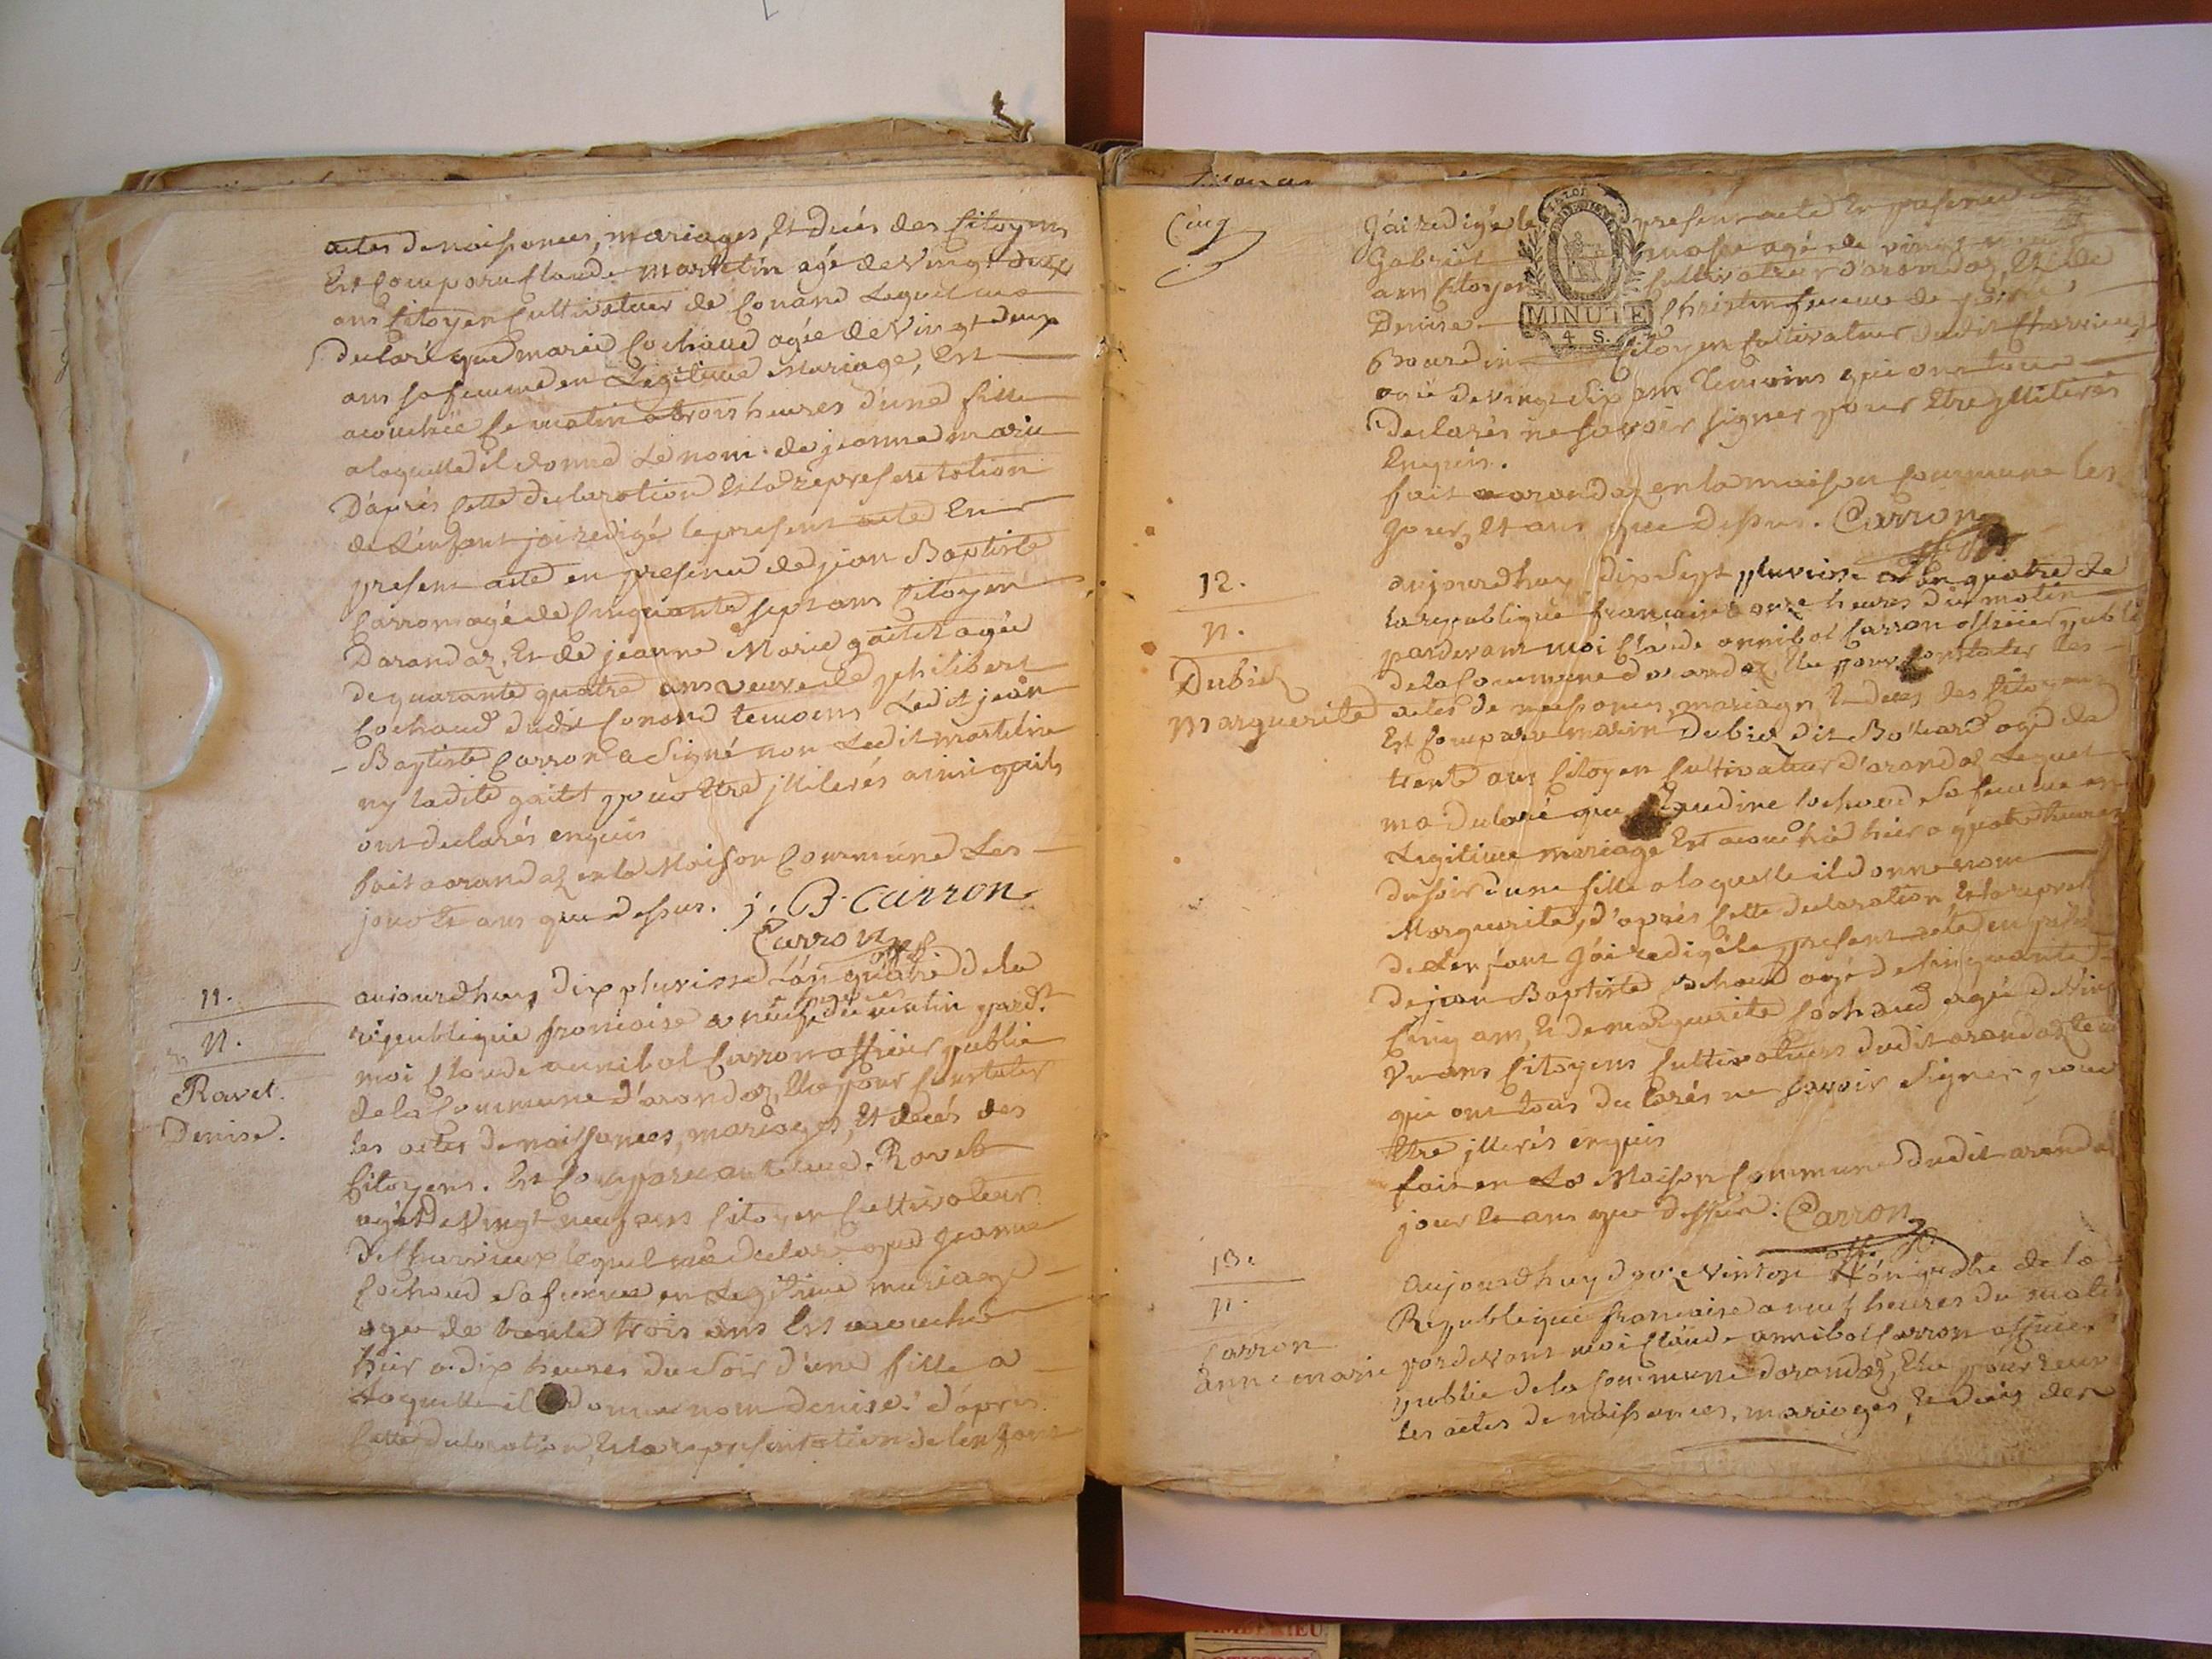 actes de naissances, mariages, Et Deces des Citoyens
Est Comparu Claude Martelin agé de Vingt deux
ans Citoyen Cultivateur de Conand Lequel m'a
Declaré que marie Cochaud agée de Vingt deux
ans sa femme en Légitime Mariage, Est
acouchée Ce matin a trois heures d'une fille
a laquelle il donne Le nom de jeanne marie
D'aprés Cette declaration Et la représentation
de L'enfant jai redigé le present acte En
present acte en presence de jean Baptiste
Carron agé de Cinquante sept ans Citoyen
Darandaz, Et de jeanne Marie gaitet agée
de quarante quatre ans veuve de philibert
Cochaud dudit Conand temoins Ledit jean
Baptiste Carron a Signé non Ledit martelin
ny ladite gaitet pour Etre jlliterés ainsi quils
ont declarés enquis
fait a arandaz en la Maison Commune Les
jour Et ans que dessus. j. B. Carron
Carron off
11.
n.
Ravet.
Denise.
aujourdhuy Dix pluviose L'an quatre de la
république francaise a neuf heures du matin pardt
moi Claude annibal Carron officier public
de la Commune d'arandaz, Elu pour Constater
les actes de naissances, mariages, Et decés des
Citoyens. Est Comparu antoine Ravet
agé de Vingt neuf ans Citoyen Cultivateur
de Charvieux lequel m'a declaré que Jeanne
Cochaud sa femme en Legitime mariage
agée de trente trois ans Est acouchée
hier a dix heures du Soir d'une fille a
Laquelle il donne nom denise. d'aprés
Cette declaration, Et la representation de lenfant
Cinq
J'ai redigé le present acte En presence
Gabriel masse agé de vingt neuf
ans Citoyen Cultivateur d'arandaz, Et de
Denise Christin femme de
Bourdin Citoyen Cultivateur dudit Charvieux
agée de vingt six ans temoins qui ont tous
declarés ne savoir signer pour Etre jlliterés
Enquis.
fait a arandaz en la maison Commune les
jour, Et ans que Dessus. Carron
off
MINUTE
4 S.
12.
n.
Dubiez
Marguerite
aujourdhuy dix Sept pluviose L'an quatre de
la republique francaise a onze heures du matin
pardevant moi Claude annibal Carron officier public
de la Commune d'arandaz, Elu pour Constater les
actes de naissances, mariages, Et deces des Citoyens
Est Comparu marin Dubiez dit agé de
trente ans Citoyen Cultivateur d'arandaz Lequel
m'a declaré que Claudine Cochaud Sa femme en
Legitime mariage Est acouchée hier a quatre heures
du soir d'une fille a laquelle il donne nom
Marguerite, d'aprés Cette declaration Et la repres
de Lenfant J'ai redigé le present acte en prese
de jean Baptiste Cochaud agé de Cinquante
Cinq ans, Et de marguerite Cochaud agée de Vingt
Un ans Citoyens Cultivateurs dudit arandaz
qui ont tous declarés ne savoir Signer pour
Etre jllerés enquis
fait en La Maison Commune dudit arandaz
jour Et ans que dessus. Carron
off
13.
n.
Carron
anne marie
aujourdhuy douze Ventose L'an quatre de la
Republique francaise a neuf heures du matin
pardevant moi Claude annibal Carron officier
public de la Commune d'arandaz, Elu pour
les actes de naissances, mariages, Et deces des